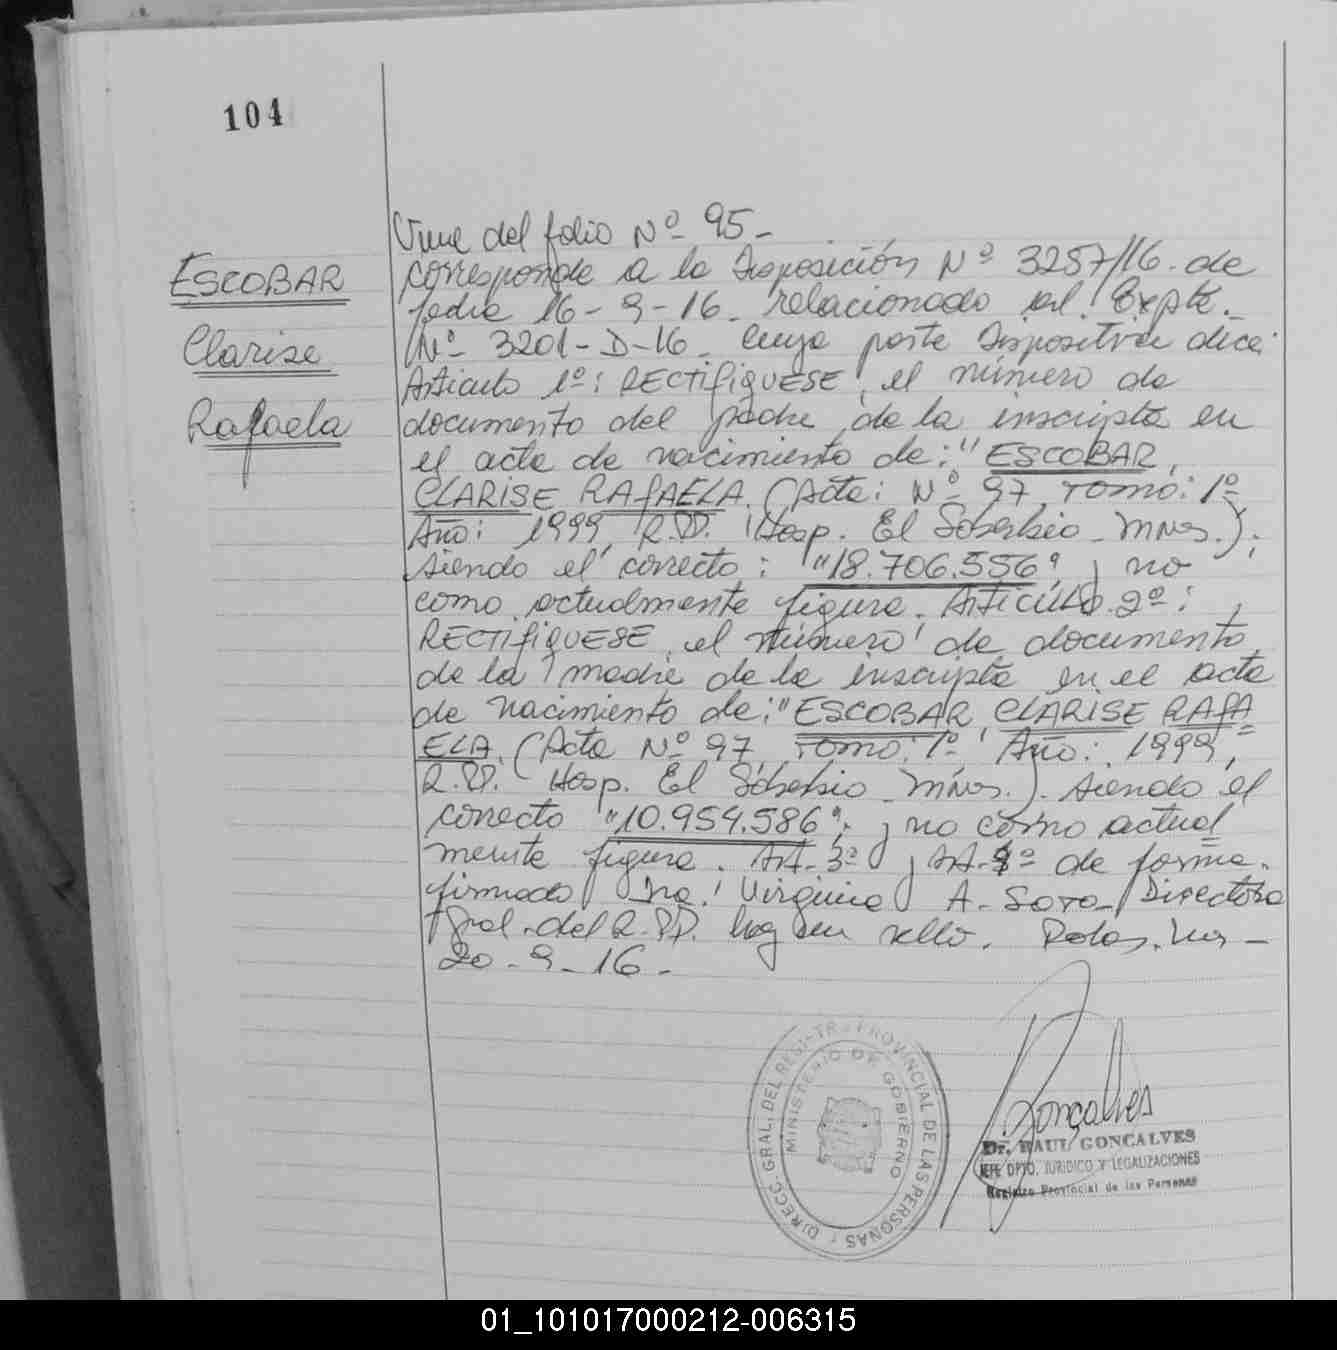 104
ESCOBAR
Clarise
Rafaela
Viene del folio Nº 95-
corresponde a la Disposición Nº 3257/16. de
fecha 16-9-16. relacionado al Expte.
Nº 3201-D-16. cuya parte Dispositiva dice:
Articulo 1º: RECTIFIQUESE, el número de
documento del padre de la inscripta en
el acta de nacimiento de: "ESCOBAR,
CLARISE RAFAELA. (Acta: Nº 97, Tomo: 1º
Año: 1999, R.PP. Hosp. El Soberbio - Mnes.);
siendo el correcto: "18.706.556" y no
como actualmente figura. Articulo 2º:
RECTIFIQUESE, el número de documento
de la madre de la inscripta en el acta
de nacimiento de: "ESCOBAR, CLARISE RAFA
ELA. (Acta Nº 97, Tomo: 1º, Año: 1999,
R.PP. Hosp. El Soberbio - Mnes.). siendo el
correcto "10.954.586"; y no como actual
mente figura. Art. 3º y Art. 4º de forma.
firmado Virginia A. Soto - Directora
Gral. del R.PP. hay un sello. Pdas. Mnes -
20-9-16.
DIRECC. GRAL. DEL REGISTR. PROVINCIAL DE LAS PERSONAS
MINISTERIO DE GOBIERNO
Gonçalves
Dr. RAUL GONCALVES
JEFE DPTO. JURIDICO Y LEGALIZACIONES
Registro Provincial de las Personas
01_101017000212-006315